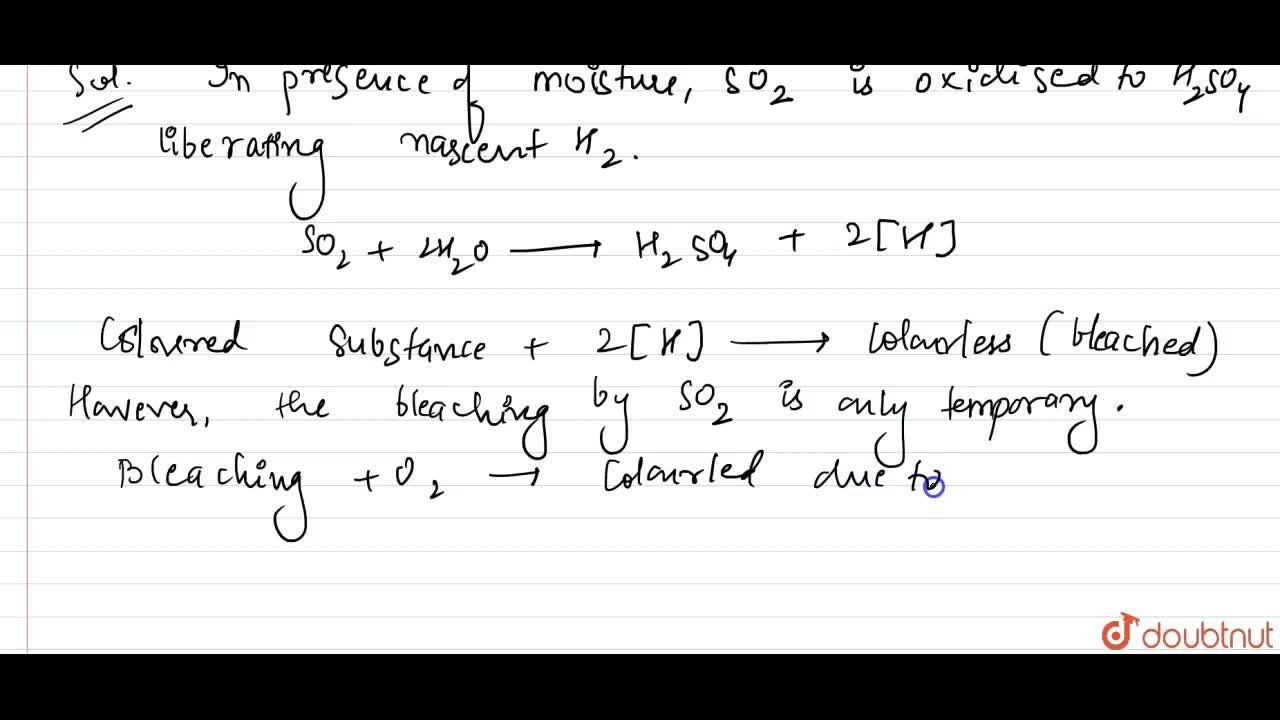 Sol. In presence of moisture, SO₂ is oxidised to H₂SO₄
liberating nascent H₂.
SO₂ + 2H₂O ⟶ H₂SO₄ + 2[H]
Coloured substance + 2[H] ⟶ Colourless (bleached)
However, the bleaching by SO₂ is only temporary.
Bleaching + O₂ → Colourled due to
doubtnut